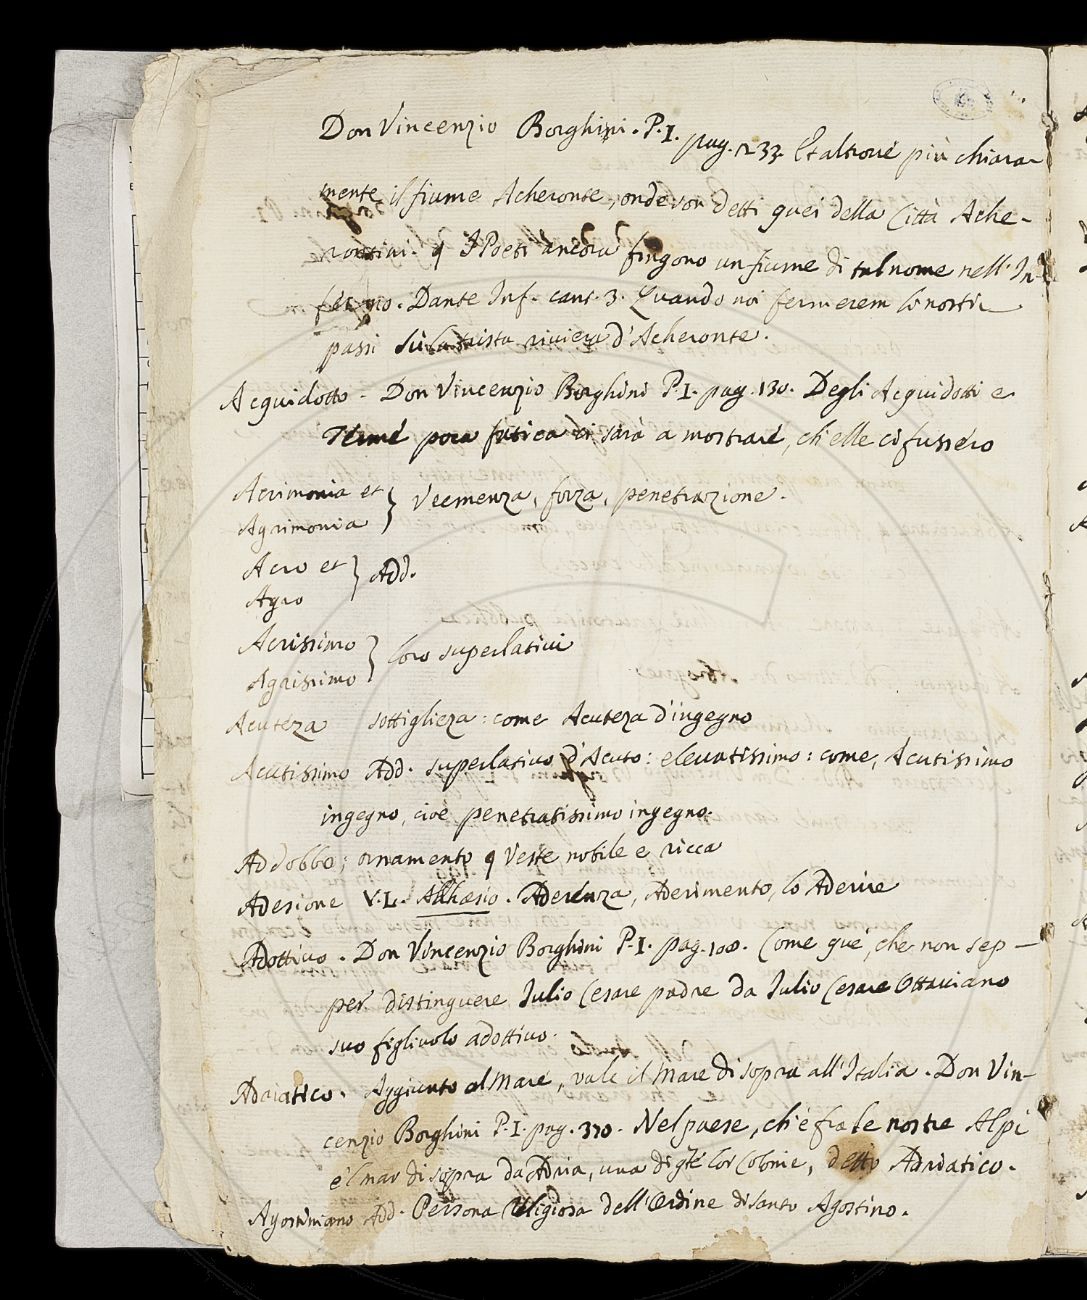 Don Vincenzio Borghini. P. I. pag. 233. Et altrove più chiara-
mente il fiume Acheronte, onde son detti quei della Città Ache-
rontini. q I Poeti ancora fingono un fiume di tal nome nell'In-
ferno. Dante Inf. cant. 3. Quando noi fermerem li nostri
passi Su la trista riviera d'Acheronte.
Acquidotto. Don Vincenzio Borghini P. I. pag. 130. Degli Acquidotti e
Terme poca fatica ci sarà a mostrare, ch'elle ci fussero
Acrimonia et } Veemenza, forza, penetrazione.
Agrimonia
Acro et } Add.
Agro
Acrissimo } loro superlativi
Agrissimo
Acuteza sottiglieza: come Acuteza d'ingegno
Acutissimo Add. superlativo d'Acuto: elevatissimo: come, Acutissimo
ingegno, cioè penetratissimo ingegno.
Addobbo; ornamento q Veste nobile e ricca
Adesione V. L. Adhæsio. Aderenza, Aderimento, lo Aderire
Adottivo. Don Vincenzio Borghini P. I. pag. 100. Come que', che non sep-
per distinguere Iulio Cesare padre da Iulio Cesare Ottaviano
suo figlivolo adottivo.
Adriatico. Aggiunto al Mare, vale il Mare di sopra all'Italia. Don Vin-
cenzio Borghini P. I. pag. 370. Nel paese, ch'è fra le nostre Alpi
e 'l mar di sopra da Adria, una di q lor Colonie, detto Adriatico.
Agostiniano Add. Persona Religiosa dell'Ordine di Santo Agostino.